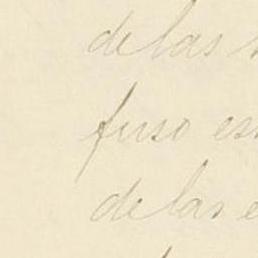 de las
fuso es
de las e